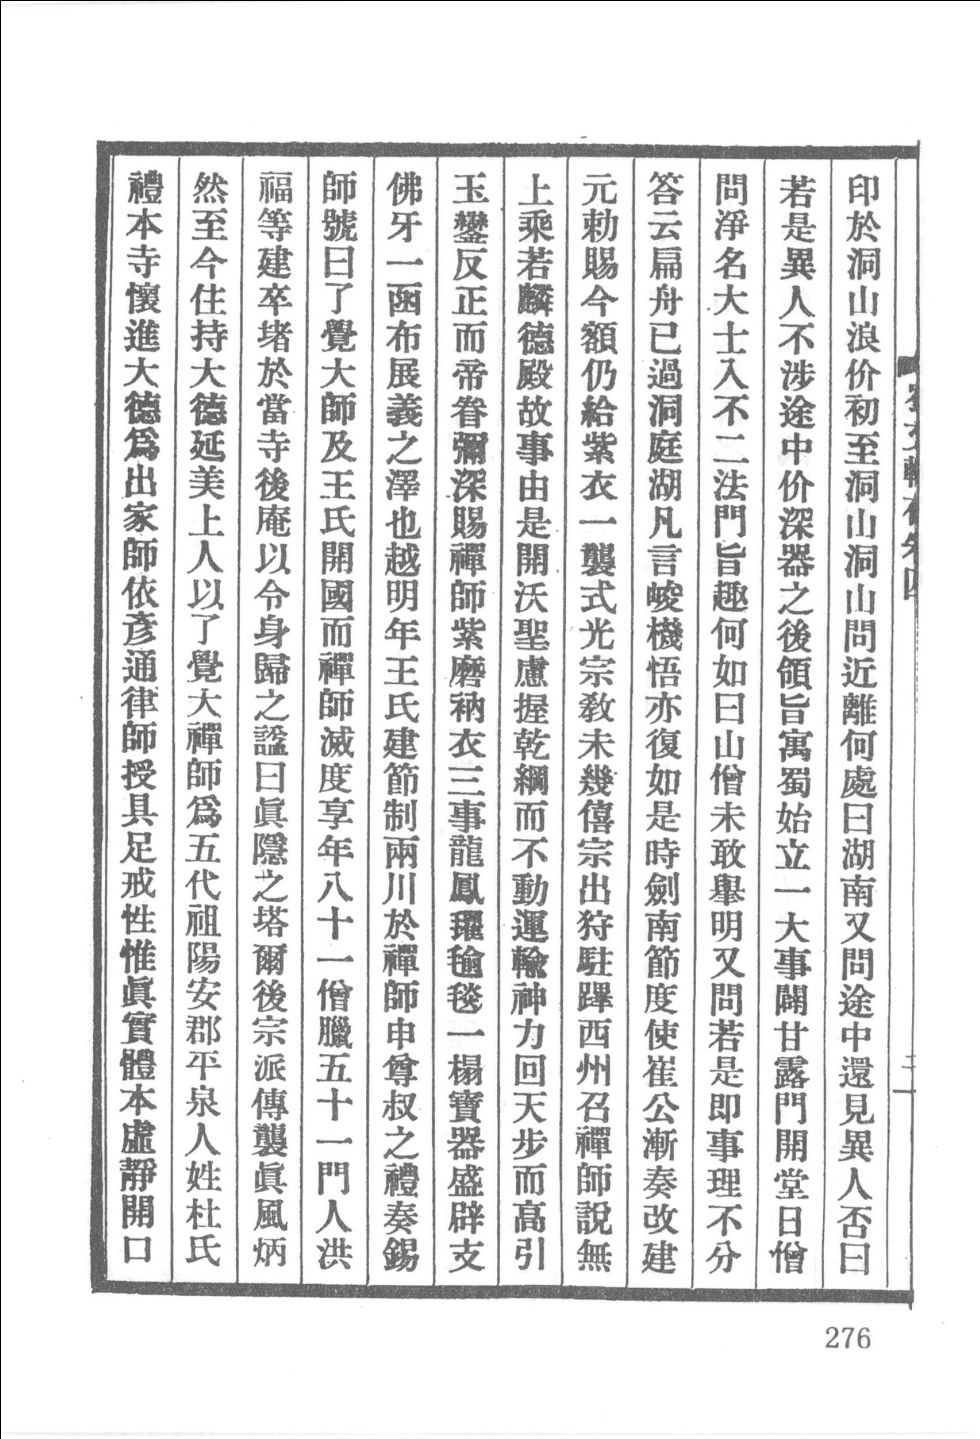 印於洞山浪价初至洞山洞山問近離何處曰湖南又問途中還見異人否曰
若是異人不涉途中价深器之後領旨寓蜀始立一大事闢甘露門開堂日僧
問淨名大士入不二法門旨趣何如曰山僧未敢舉明又問若是即事理不分
答云扁舟已過洞庭湖凡言峻機悟亦復如是時劍南節度使崔公漸奏改建
元勅賜今額仍給紫衣一襲式光宗敎未幾僖宗出狩駐蹕西州召禪師說無
上乘若麟德殿故事由是開沃聖慮握乾綱而不動運輸神力回天步而高引
玉鑾反正而帝眷彌深賜禪師紫磨衲衣三事龍鳳㲲毺毯一榻寶器盛辟支
佛牙一函布展義之澤也越明年王氏建節制兩川於禪師申尊叔之禮奏錫
師號曰了覺大師及王氏開國而禪師滅度享年八十一僧臘五十一門人洪
福等建卒堵於當寺後庵以令身歸之諡曰眞隱之塔爾後宗派傳襲眞風炳
然至今住持大德延美上人以了覺大禪師爲五代祖陽安郡平泉人姓杜氏
禮本寺懷進大德爲出家師依彥通律師授具足戒性惟眞實體本虛靜開口
二
276